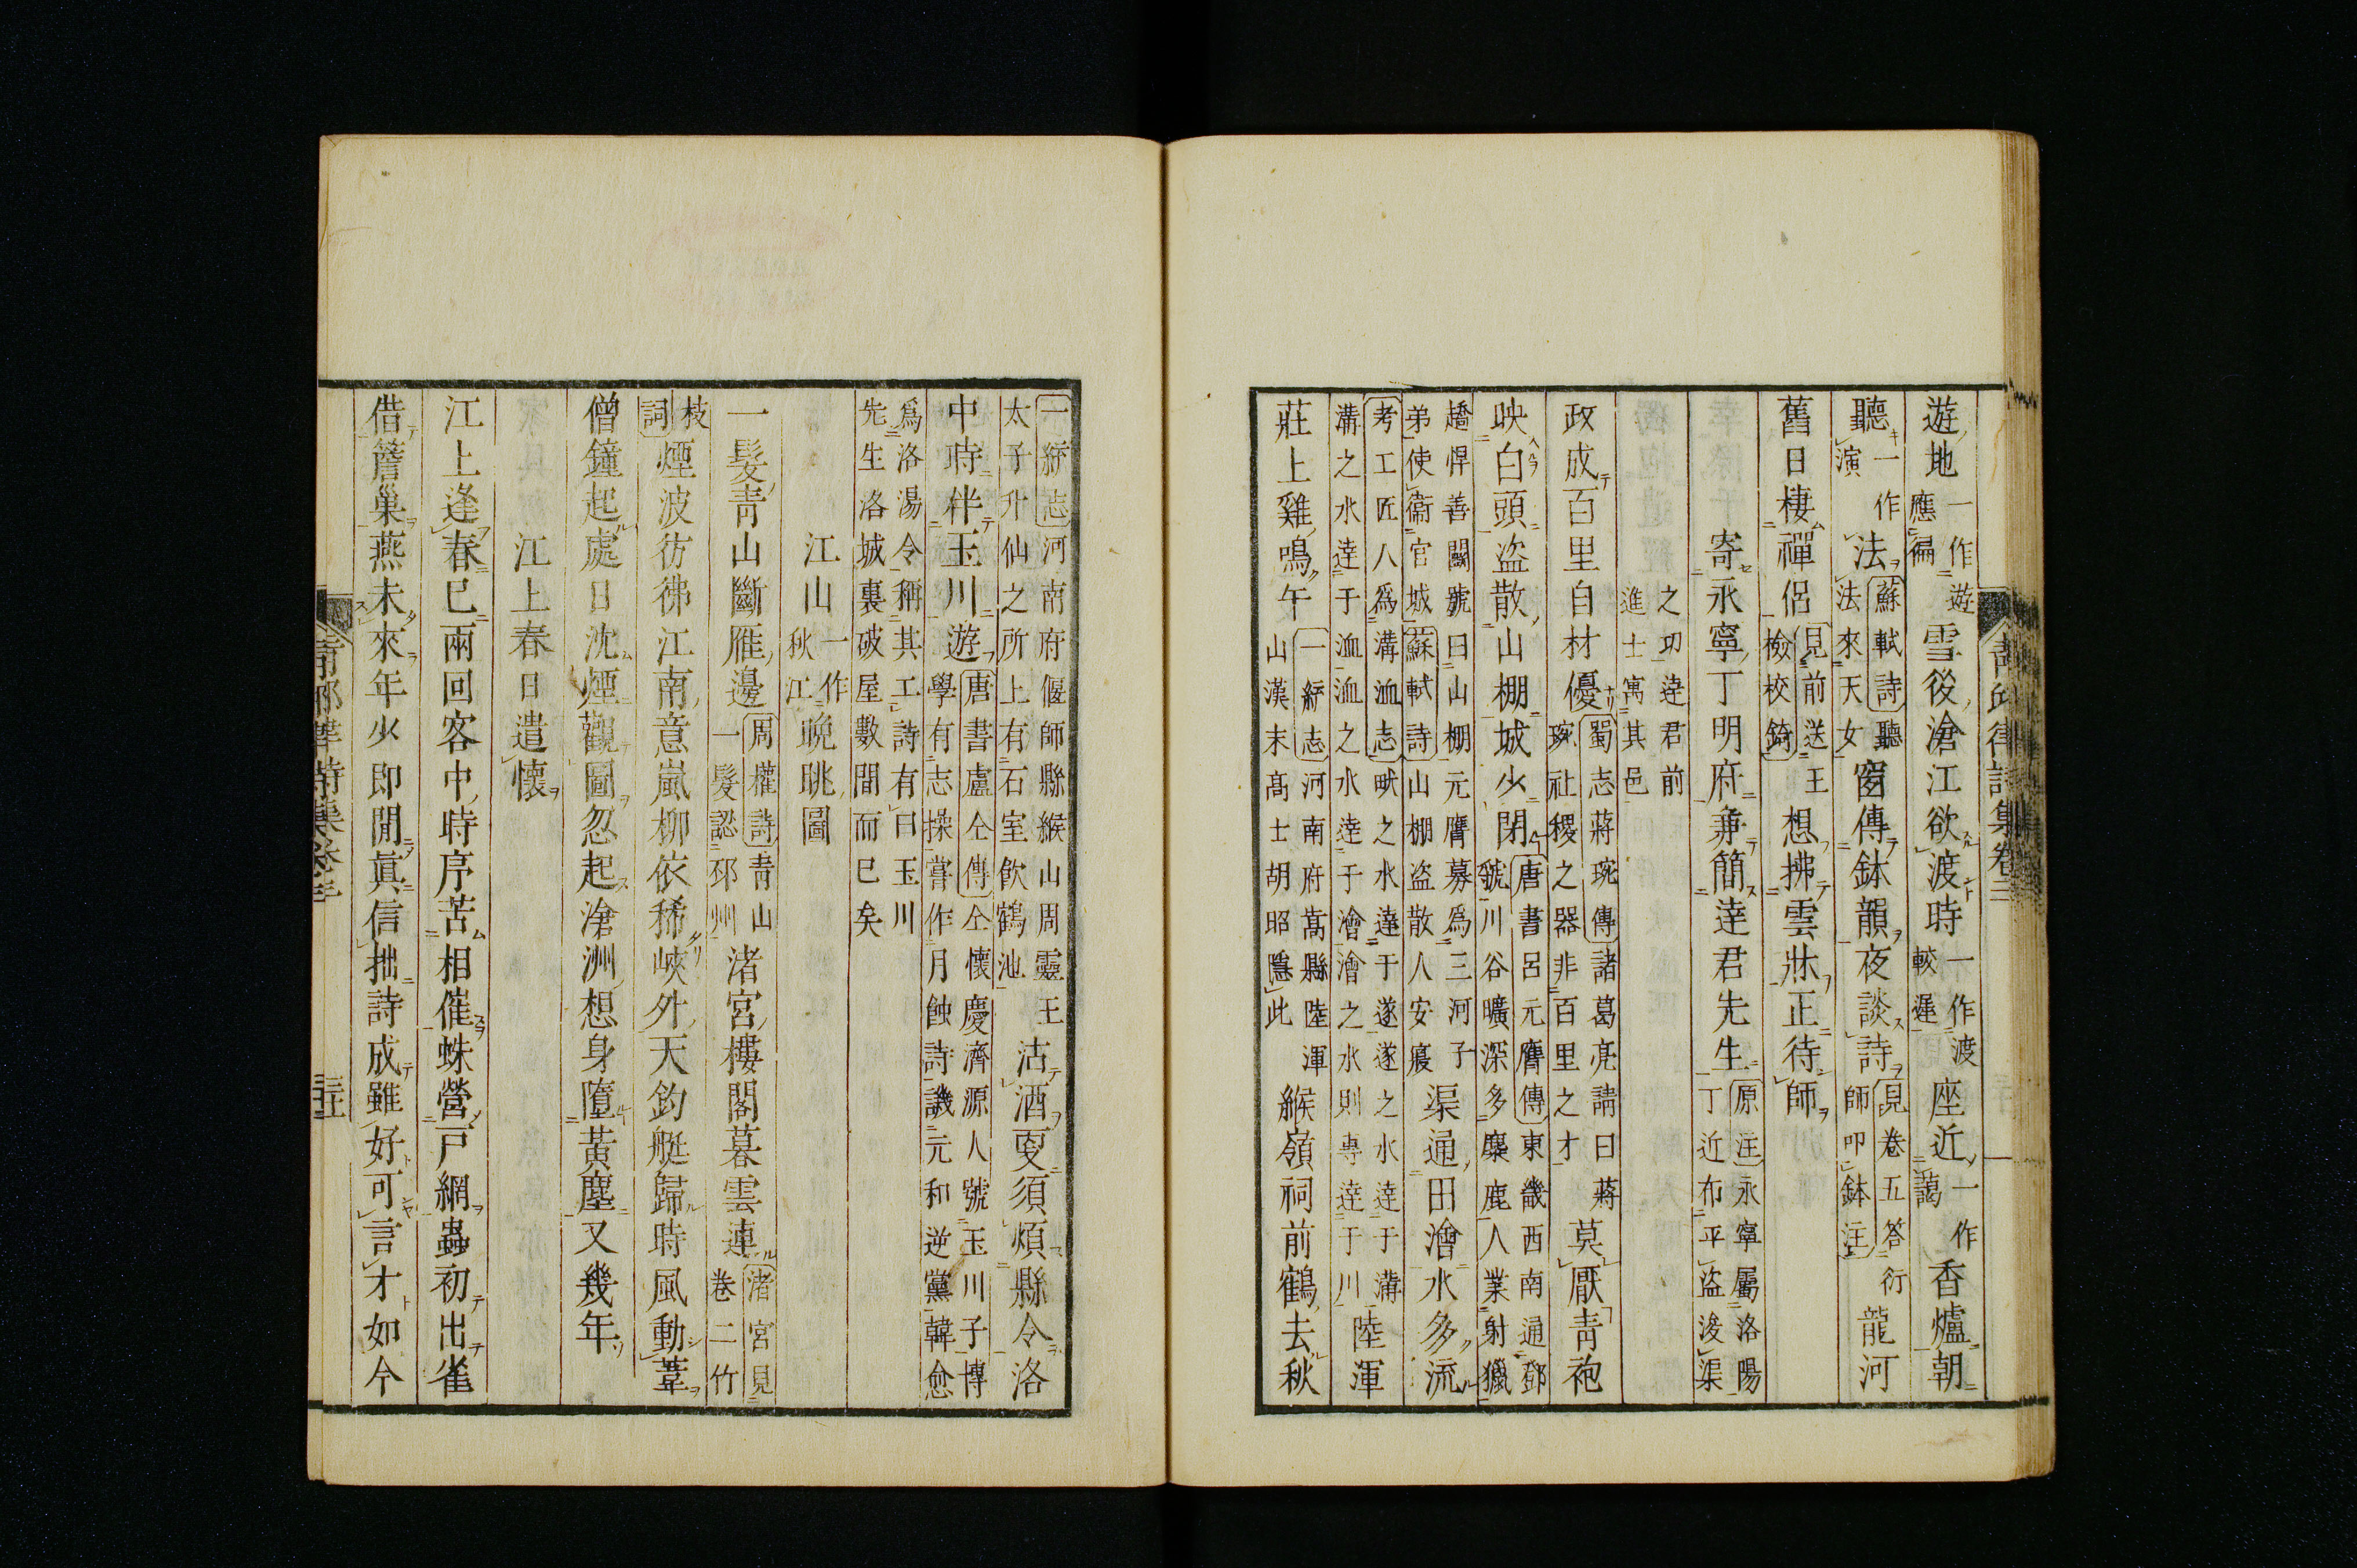 青邱律詩集卷三
遊地一作遊應徧雪後滄江欲渡時一作渡較遲座近一作藹香爐朝
聽一作演法蘇軾詩聽法來天女窗傳鉢韻夜談詩見卷五答衍師叩鉢注龍河
舊日棲禪侶見前送王檢校錡想拂雲牀正待師
寄永寧丁明府兼簡逵君先生原注永寧屬洛陽丁近布平盜浚渠
之功逵君前進士寓其邑
政成百里自材優蜀志蔣琬傳諸葛亮請曰蔣琬社稷之器非百里之才莫厭青袍
映白頭盜散山棚城少閉唐書呂元膺傳東畿西南通鄧虢川谷曠深多麋鹿人業射獵
趫悍善鬭號曰山棚元膺募爲三河子弟使衞官城蘇軾詩山棚盜散人安寢渠通田澮水多流
考工匠人爲溝洫志畎之水達于遂遂之水達于溝溝之水達于洫洫之水達于澮澮之水則專達于川陸渾
莊上雞鳴午一統志河南府嵩縣陸渾山漢末高士胡昭隱此緱嶺祠前鶴去秋
一統志河南府偃師縣緱山周靈王太子升仙之所上有石室飲鶴池沽酒更須煩縣令洛
中時伴玉川遊唐書盧仝傳仝懷慶濟源人號玉川子博學有志操嘗作月蝕詩譏元和逆黨韓愈
爲洛湯令稱其工詩有曰玉川先生洛城裏破屋數間而已矣
江山一作秋江晩眺圖
一髮青山斷雁邊周權詩青山一髮認邳州渚宮樓閣暮雲連渚宮見卷二竹
枝詞煙波彷彿江南意嵐柳依稀峽外天釣艇歸時風動葦
僧鐘起處日沈煙觀圖忽起滄洲想身墮黃塵又幾年
江上春日遣懷
江上逢春已兩回客中時序苦相催蛛營戸網蟲初出雀
借簷巢燕未來年少即閒眞信拙詩成雖好可言才如今